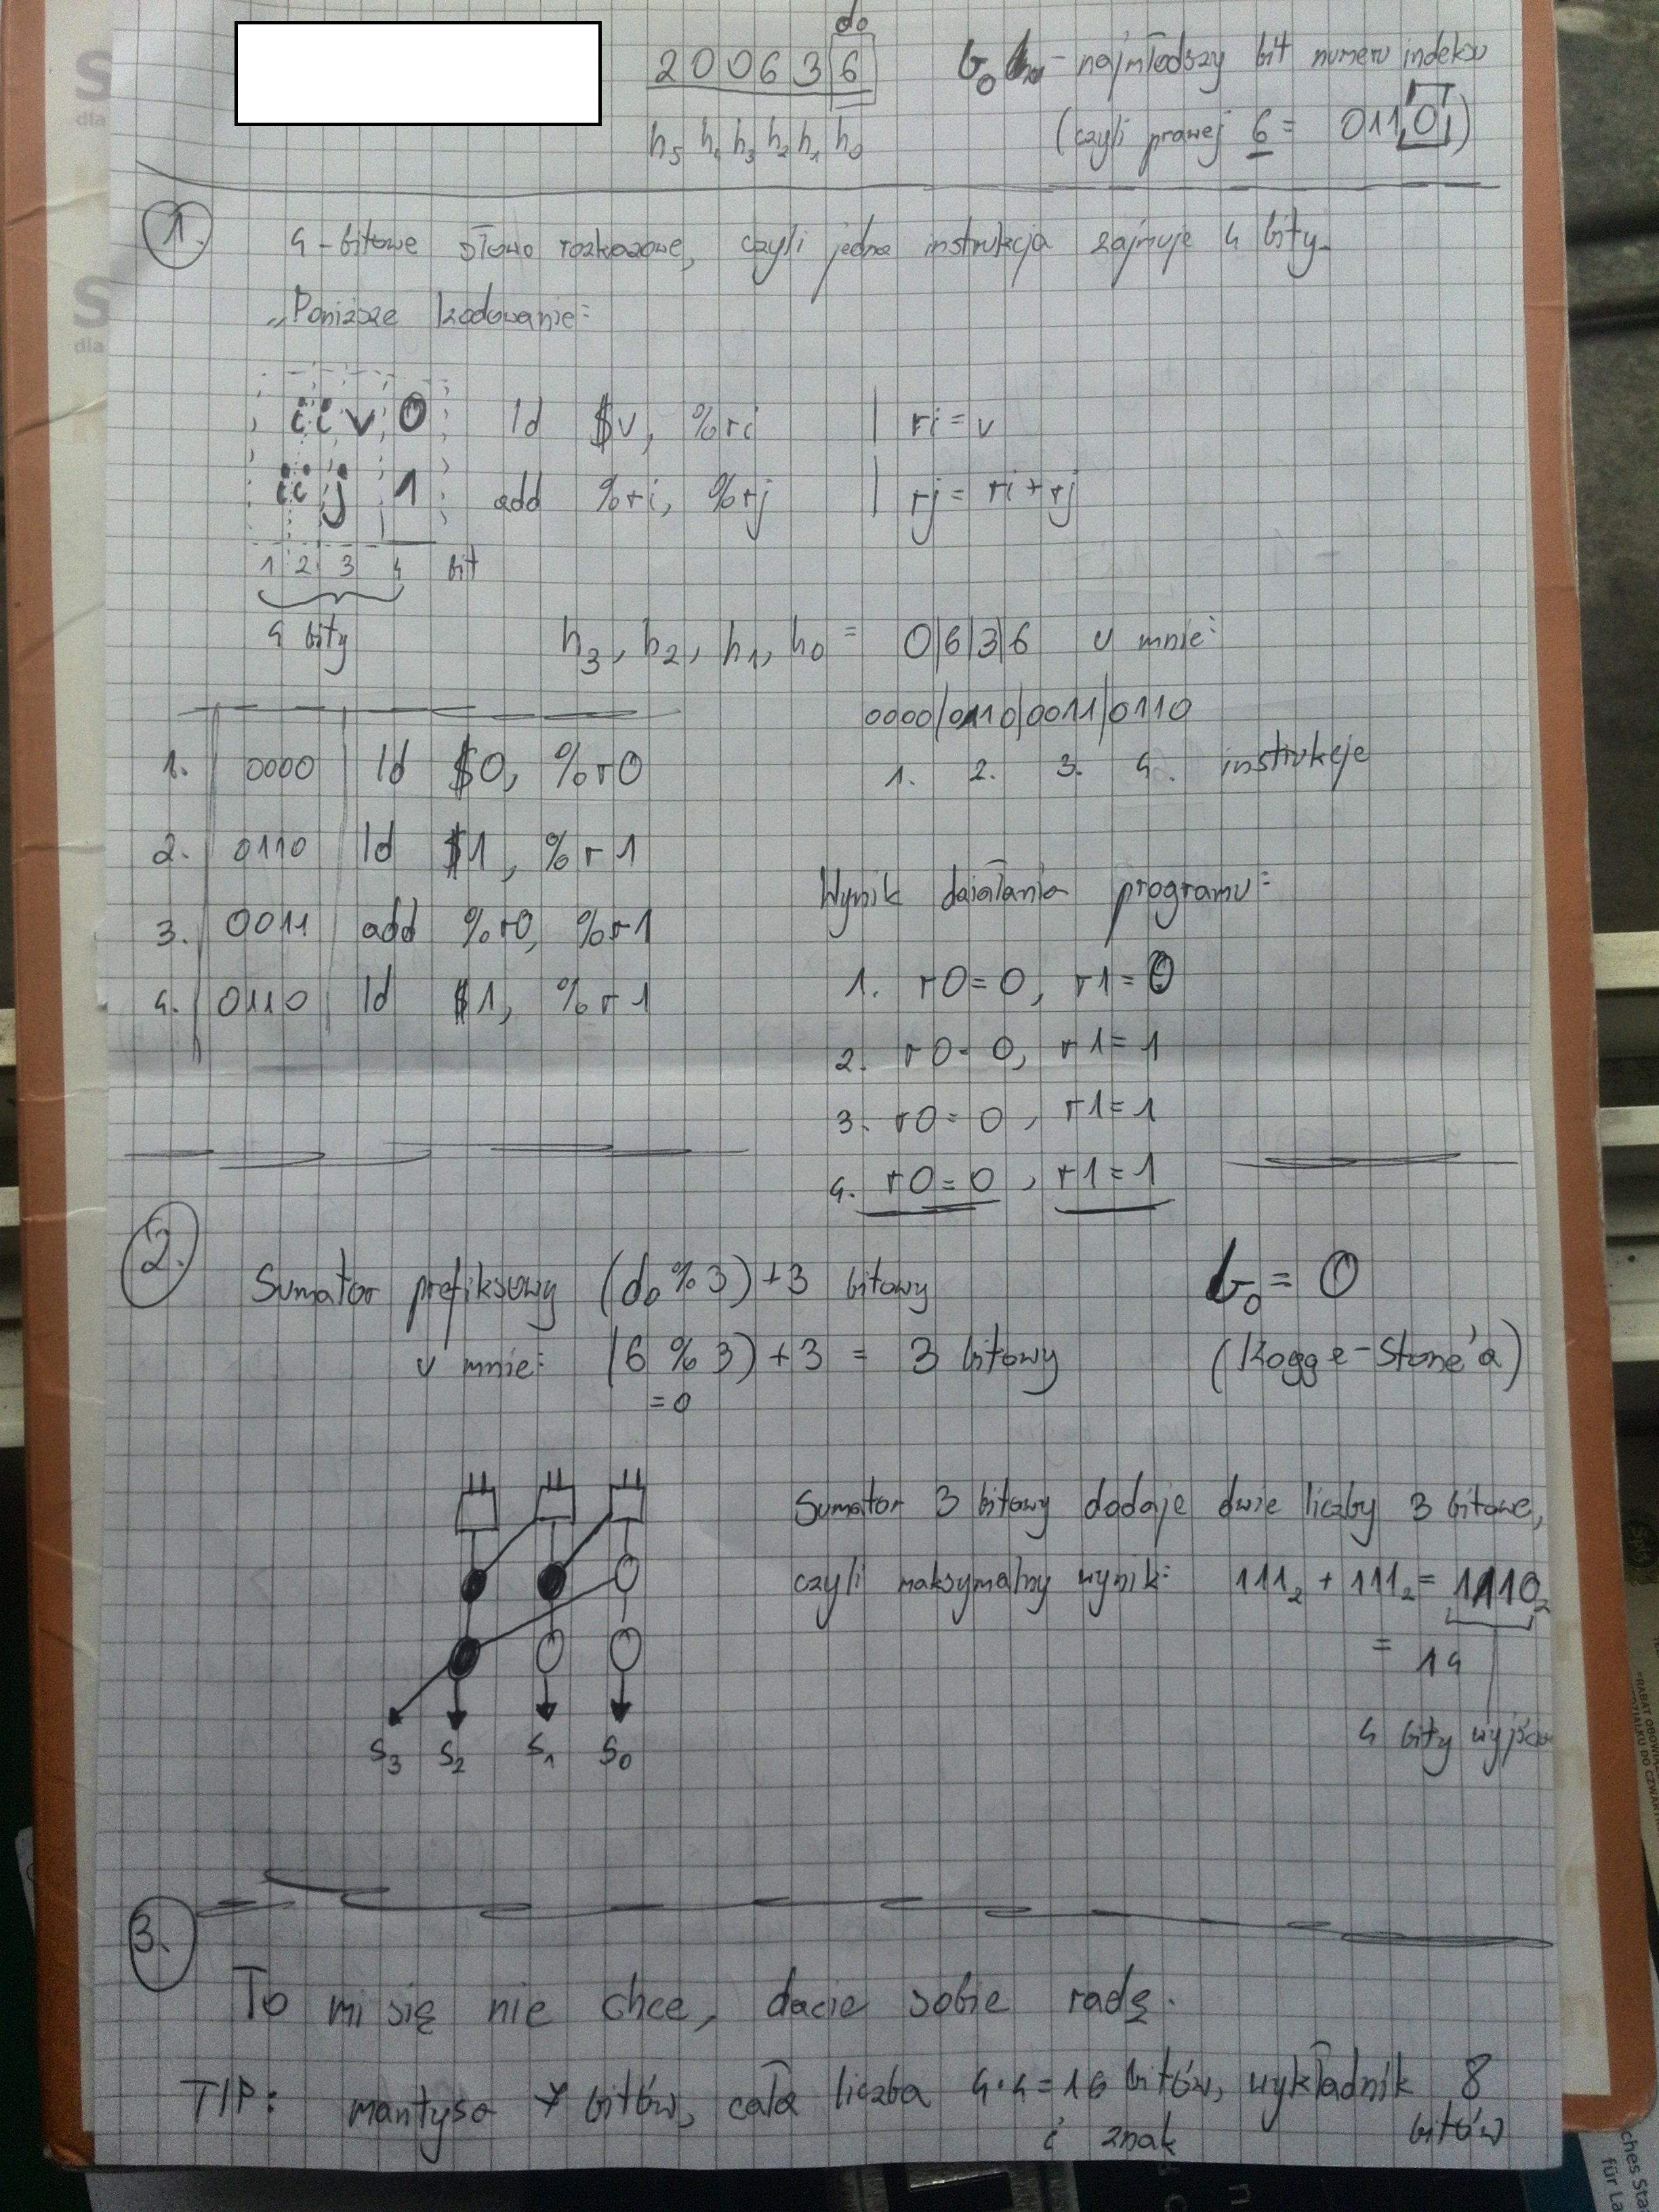 do
200636
b₀ - najmłodszy bit numeru indeksu
h₅ h₄ h₃ h₂ h₁ h₀
(czyli prawej 6 = 0110)
1.
4-bitowe słowo rozkazowe, czyli jedna instrukcja zajmuje 4 bity.
"Poniższe kodowanie:
i i v 0 ld $v, %ri | ri = v
i i j 1 add %ri, %rj | rj = ri + rj
1 2 3 4 bit
4 bity
h₃, h₂, h₁, h₀ = 0|6|3|6 u mnie:
0000|0110|0011|0110
1. 2. 3. 4. instrukcje
1. 0000 ld $0, %r0
2. 0110 ld $1, %r1
3. 0011 add %r0, %r1
4. 0110 ld $1, %r1
Wynik działania programu:
1. r0 = 0, r1 = 0
2. r0 = 0, r1 = 1
3. r0 = 0, r1 = 1
4. r0 = 0, r1 = 1
2.
Sumator prefiksowy (d₀ % 3) + 3 bitowy
b₀ = 0
u mnie: (6 % 3) + 3 = 3 bitowy
(Kogge-Stone'a)
= 0
Sumator 3 bitowy dodaje dwie liczby 3 bitowe,
czyli maksymalny wynik: 111₂ + 111₂ = 1110₂
= 14
4 bity wyjścia
S₃ S₂ S₁ S₀
3.
To mi się nie chce, dacie sobie radę.
TIP: mantysa 7 bitów, cała liczba 4·4 = 16 bitów, wykładnik 8
i znak bitów